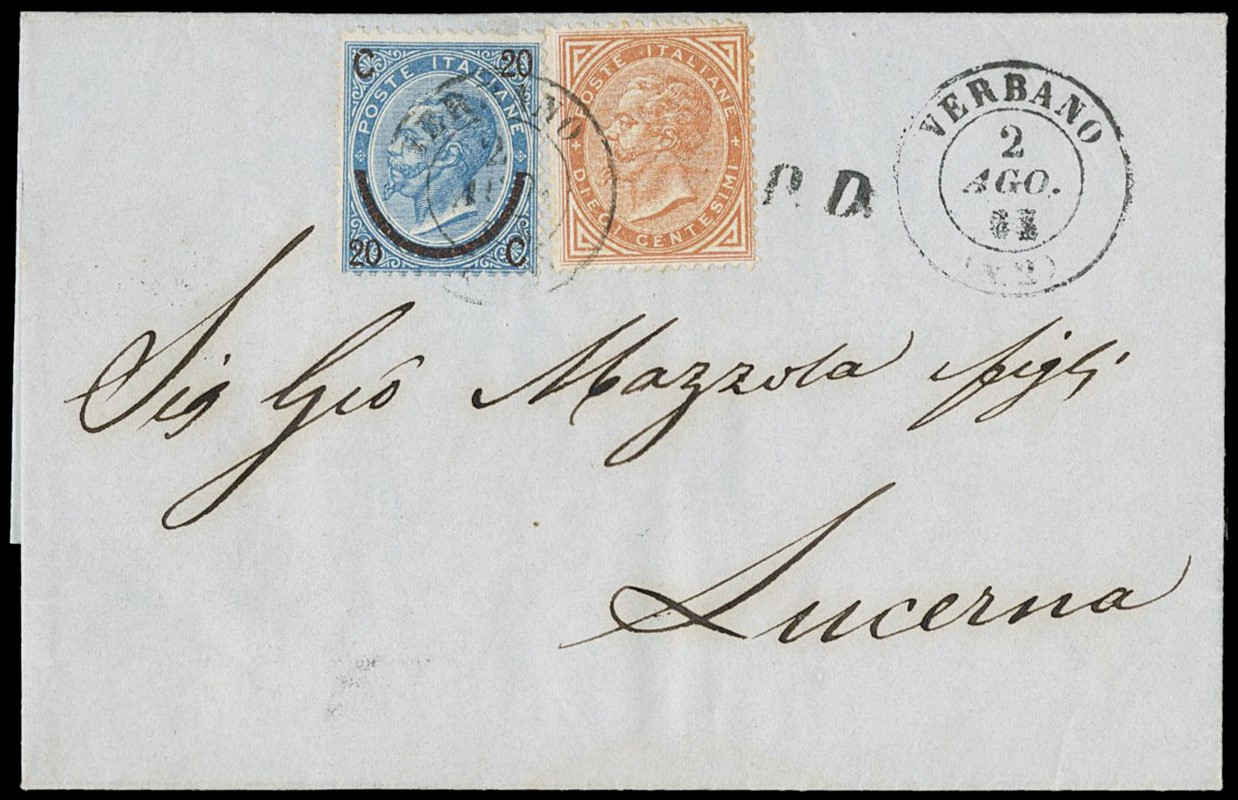 C 20
POSTE ITALIANE
20 C
POSTE ITALIANE
DIECI CENTESIMI
VERBANO
2
P. D.
VERBANO
2
AGO.
(N.2)
Sig Gio Mazzola figli
Lucerna